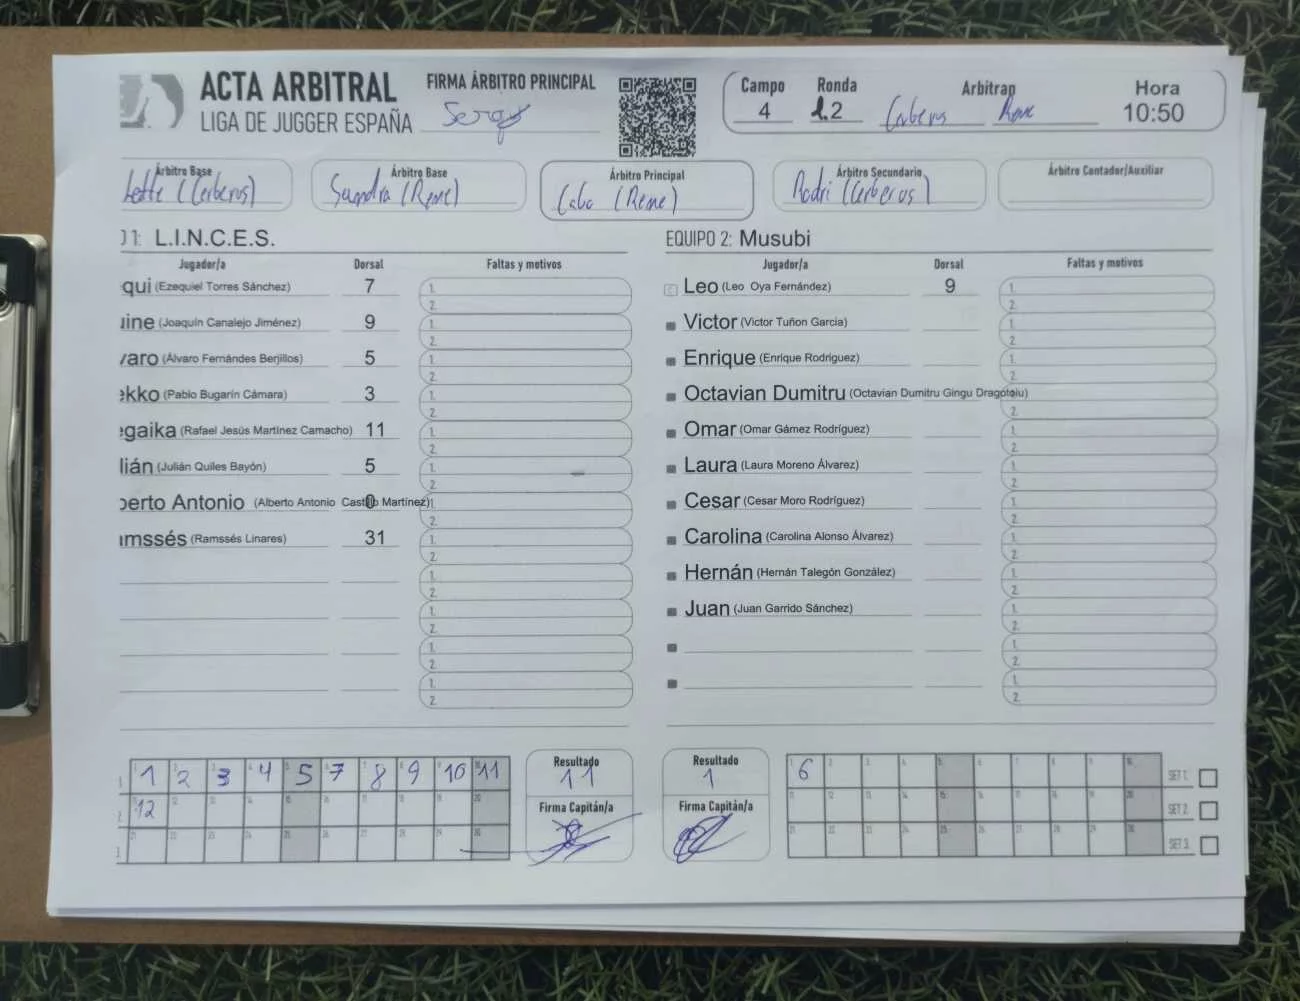 ACTA ARBITRAL
LIGA DE JUGGER ESPAÑA
FIRMA ÁRBITRO PRINCIPAL
Campo Ronda Arbitran Hora
4 1.2 Cerberus Reme 10:50
Árbitro Base
Lette (Cerberus)
Árbitro Base
Sandra (Reme)
Árbitro Principal
Cabo (Reme)
Árbitro Secundario
Rodri (Cerberus)
Árbitro Contador/Auxiliar
O 1: L.I.N.C.E.S.
Jugador/a Dorsal Faltas y motivos
qui (Ezequiel Torres Sánchez) 7 1. 2.
uine (Joaquín Canalejo Jiménez) 9 1. 2.
varo (Álvaro Fernándes Berjillos) 5 1. 2.
ekko (Pablo Bugarín Cámara) 3 1. 2.
egaika (Rafael Jesús Martínez Camacho) 11 1. 2.
lián (Julián Quiles Bayón) 5 1. 2.
berto Antonio (Alberto Antonio Castillo Martínez) 0 1. 2.
amssés (Ramssés Linares) 31 1. 2.
1. 2.
1. 2.
1. 2.
1. 2.
EQUIPO 2: Musubi
Jugador/a Dorsal Faltas y motivos
C Leo (Leo Oya Fernández) 9 1. 2.
Victor (Victor Tuñon Garcia) 1. 2.
Enrique (Enrique Rodríguez) 1. 2.
Octavian Dumitru (Octavian Dumitru Gingu Dragotoiu) 2.
Omar (Omar Gámez Rodríguez) 1. 2.
Laura (Laura Moreno Álvarez) 1. 2.
Cesar (Cesar Moro Rodríguez) 1. 2.
Carolina (Carolina Alonso Álvarez) 1. 2.
Hernán (Hernán Talegón González) 1. 2.
Juan (Juan Garrido Sánchez) 1. 2.
1. 2.
1. 2.
1 2 3 4 5 7 8 9 10 11
12
Resultado
11
Firma Capitán/a
Resultado
1
Firma Capitán/a
6
SET 1:
SET 2:
SET 3: